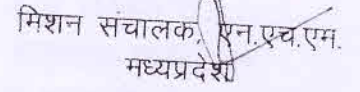 मिशन संचालक, एन.एच.एम.
मध्यप्रदेश